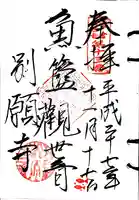 奉拝
平成二十七年
十一月十六日
魚籃觀世音
別願寺